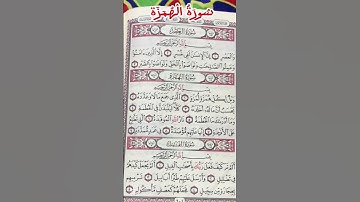 سُورَةُ الْهُمَزَة
سُورَةُ العَصْرِ
بِسْمِ اللَّهِ الرَّحْمَٰنِ الرَّحِيمِ
وَالْعَصْرِ ۝ إِنَّ الْإِنسَانَ لَفِي خُسْرٍ ۝ إِلَّا الَّذِينَ آمَنُوا
وَعَمِلُوا الصَّالِحَاتِ وَتَوَاصَوْا بِالْحَقِّ وَتَوَاصَوْا بِالصَّبْرِ ۝
سُورَةُ الهُمَزَةِ
بِسْمِ اللَّهِ الرَّحْمَٰنِ الرَّحِيمِ
وَيْلٌ لِّكُلِّ هُمَزَةٍ لُّمَزَةٍ ۝ الَّذِي جَمَعَ مَالًا وَعَدَّدَهُ ۝
يَحْسَبُ أَنَّ مَالَهُ أَخْلَدَهُ ۝ كَلَّا لَيُنبَذَنَّ فِي الْحُطَمَةِ ۝
وَمَا أَدْرَاكَ مَا الْحُطَمَةُ ۝ نَارُ اللَّهِ الْمُوقَدَةُ ۝ الَّتِي تَطَّلِعُ
عَلَى الْأَفْئِدَةِ ۝ إِنَّهَا عَلَيْهِم مُّؤْصَدَةٌ ۝ فِي عَمَدٍ مُّمَدَّدَةٍ ۝
سُورَةُ الفِيلِ
بِسْمِ اللَّهِ الرَّحْمَٰنِ الرَّحِيمِ
أَلَمْ تَرَ كَيْفَ فَعَلَ رَبُّكَ بِأَصْحَابِ الْفِيلِ ۝ أَلَمْ يَجْعَلْ كَيْدَهُمْ
فِي تَضْلِيلٍ ۝ وَأَرْسَلَ عَلَيْهِمْ طَيْرًا أَبَابِيلَ ۝ تَرْمِيهِم
بِحِجَارَةٍ مِّن سِجِّيلٍ ۝ فَجَعَلَهُمْ كَعَصْفٍ مَّأْكُولٍ ۝